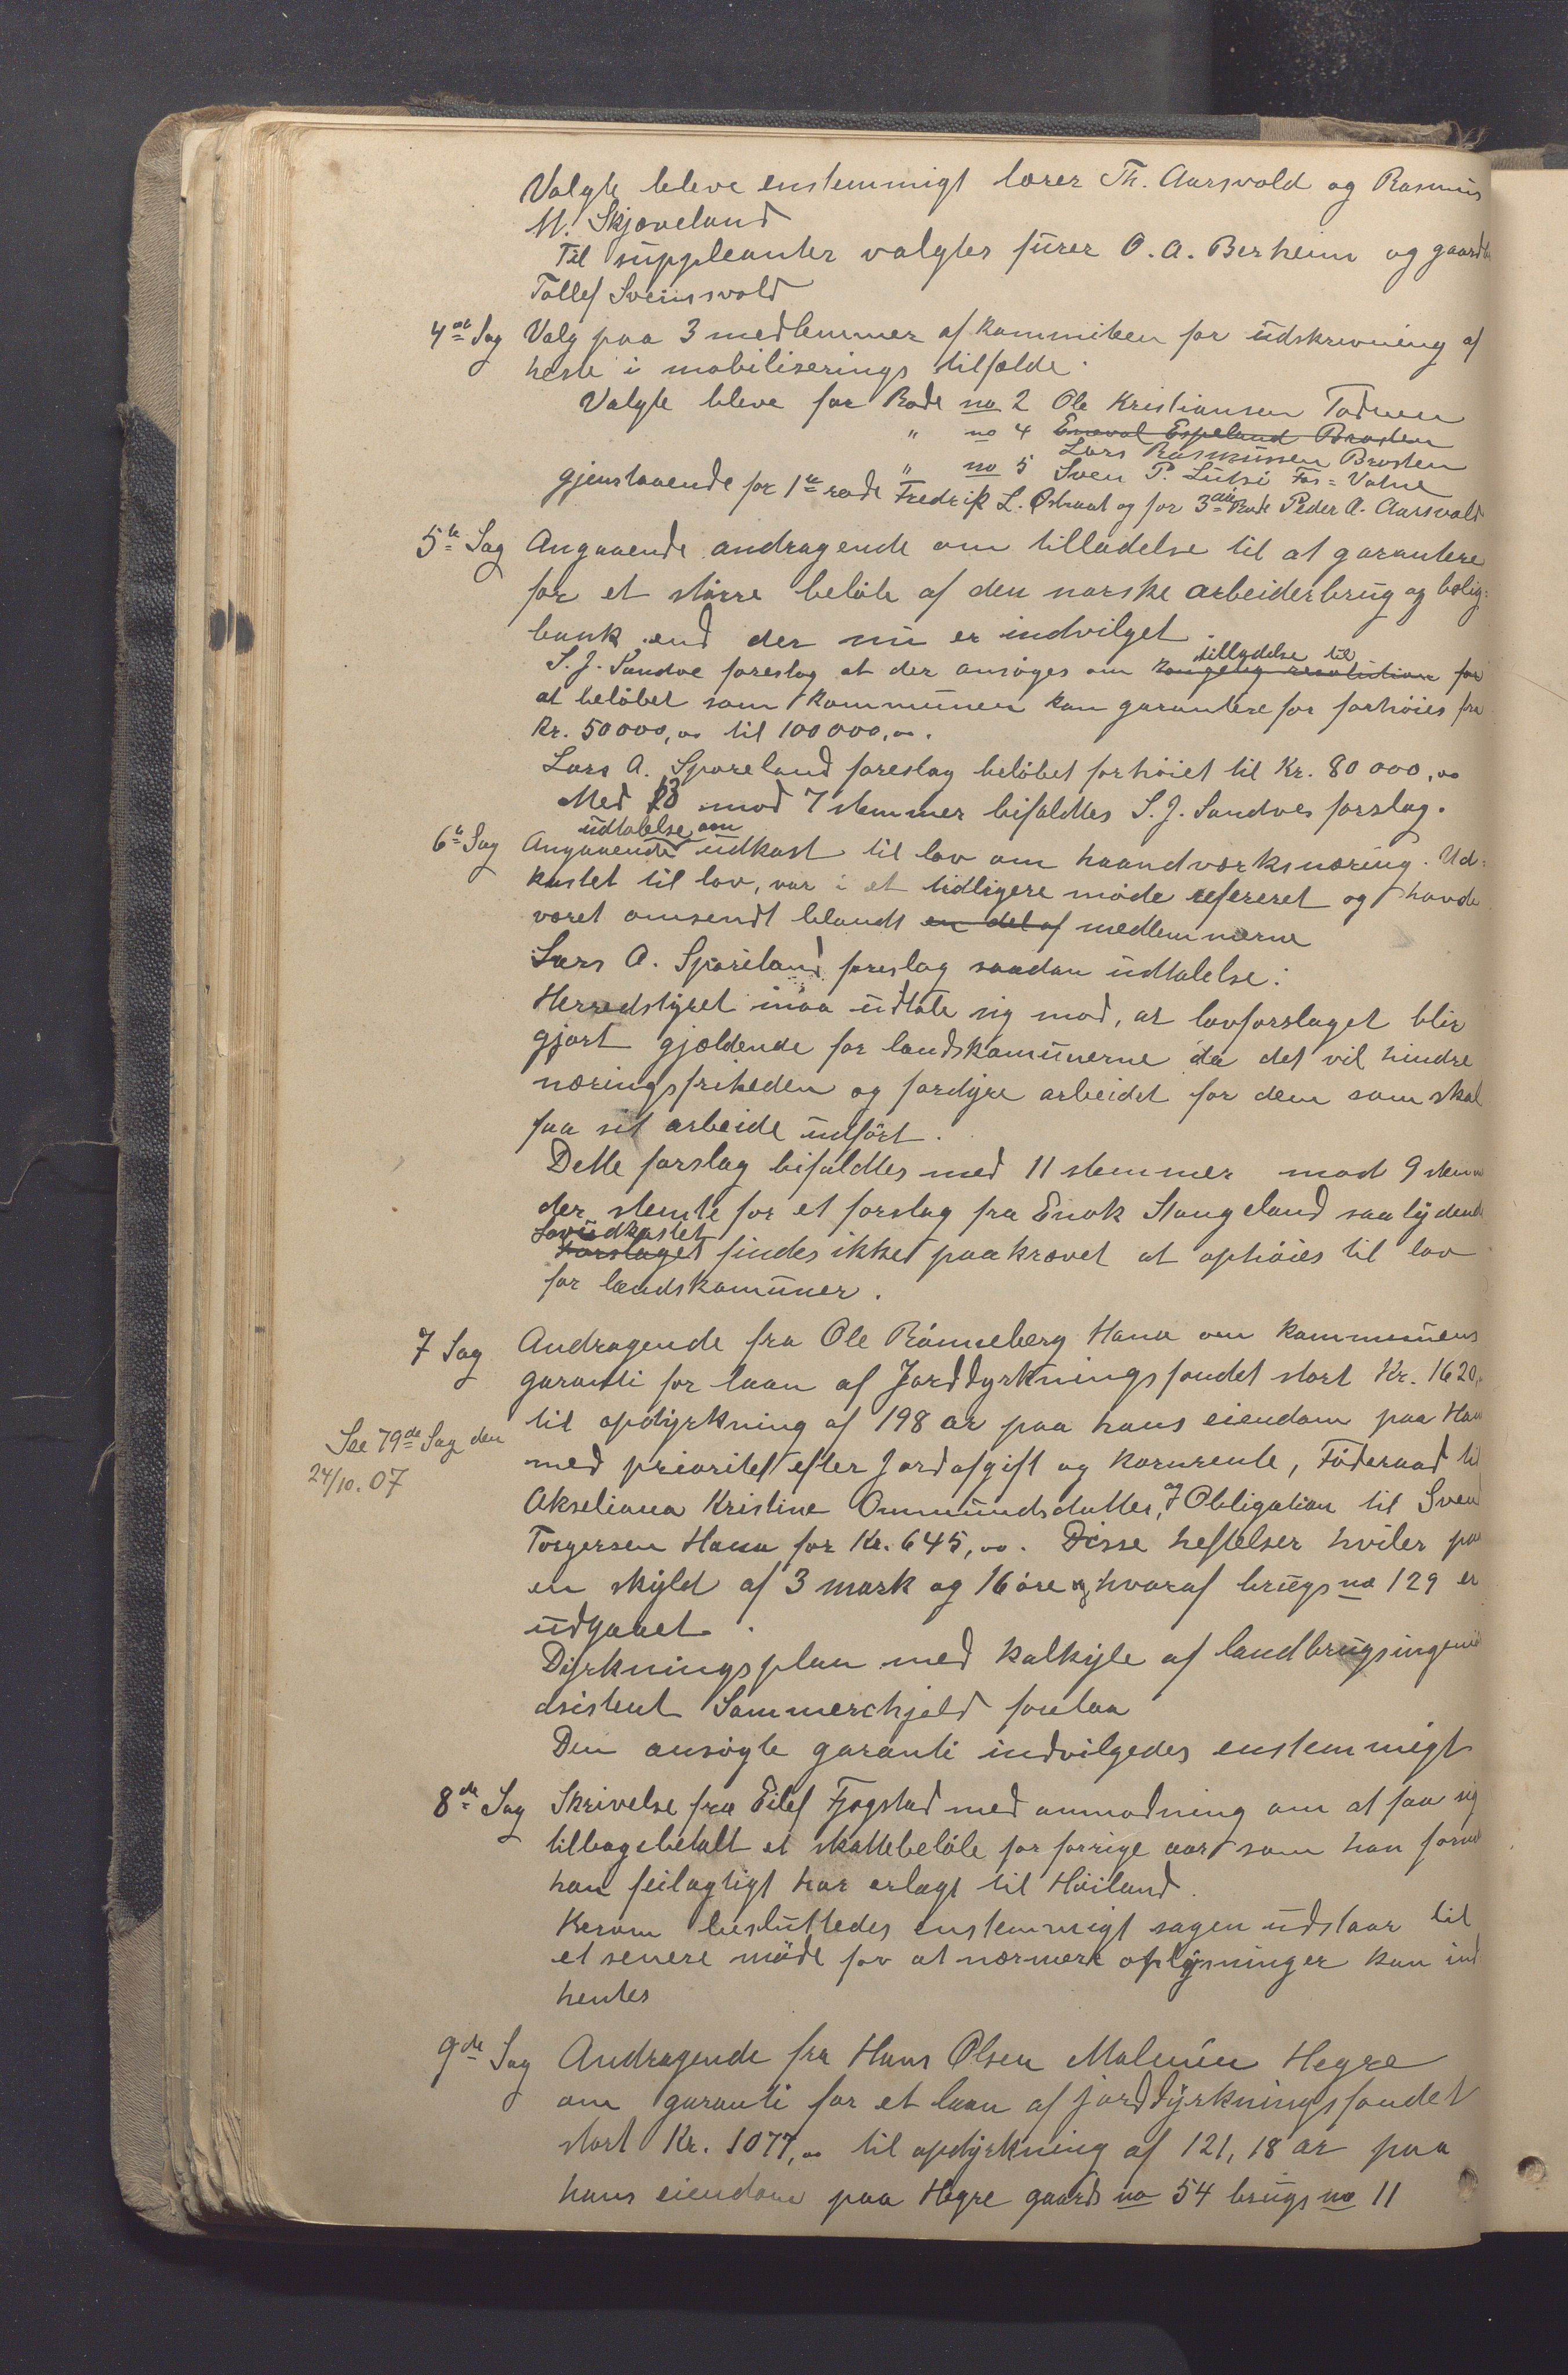 Valgte bleve enstemmigt lærer Th. Aarsvold og Rasmus
M. Skjæveland
Til suppleanter valgtes furer O. A. Berheim og gaardb
Tollef Svennsvold
4de Sag Valg paa 3 medlemmer af kommiteen for udskrivning af
heste i mobiliserings tilfælde.
Valgte bleve for Rode no 2 Ole Kristiansen Tødnem
" no 4 Enevol Espeland Brosten
Lars Rasmussen Brosten
" no 5 Sven P. Lutsi Fos=Vatne
gjenstaaende for 1ste rode Fredrik L. Østraat og for 3die Rode Peder A. Aarsvold
5te Sag Angaaende andragende om tilladelse til at garantere
for et større beløb af den norske arbeiderbrug og bolig=
bank, end der nu er indvilget.
tilladelse til
S. J. Sandve foreslog at der ansøges om kongelig resolution for
at beløbet som kommunen kan garantere for forhøies fra
Kr. 50000,00 til 100000,00.
Lars A. Spareland foreslog beløbet forhøiet til Kr. 80 000,00
Med 13 mod 7 stemmer bifaldtes S. J. Sandves forslag.
udtalelse om
6te Sag Angaaende udkast til lov om haandværksnæring. Ud=
kastet til lov, var i et tidligere møde refereret og havde
været omsendt blandt en del af medlemmerne
Lars A. Spareland foreslog saadan udtalelse:
Herredstyret maa udtale sig mod, at lovforslaget blir
gjort gjældende for landskomunerne da det vil hindre
næringsfriheden og fordyre arbeidet for dem som skal
faa sit arbeide udført.
Dette forslag bifaldtes med 11 stemmer mod 9 stem
der stemte for et forslag fra Enok Stangeland saalydende
Lovudkastet
Forslaget findes ikke paakrævet at ophøies til lov
for landskomuner.
7 Sag Andragende fra Ole Rønneberg Hana om kommunens
garanti for laan af Jorddyrkningsfondet stort Kr. 1620,
til opdyrkning af 198 ar paa hans eiendom paa Han
See 79de Sag den
24/10.07
med prioritet efter Jordafgift og kornrente, Føderaad til
Akseliana Kristine Ommundsdatter, og Obligation til Svend
Torgersen Hana for Kr. 645,00. Disse heftelser hviler paa
en skyld af 3 mark og 16 øre hvoraf brugs no 129 er
udgaaet.
Dyrkningsplan med kalkyle af landbrugsingeniø
asistent Sommerschjeld forelaa
Den ansøgte garanti indvilgedes enstemmigt
8de Sag Skrivelse fra Eilef Fjogstad med anmodning om at faa sig
tilbagebetalt et skattebeløb for forrige aar som han form
han feilagtigt har erlagt til Høiland.
Herom besluttedes enstemmigt sagen udstaar til
et senere møde for at nærmere oplysninger kan ind
hentes
9de Sag Andragende fra Hans Olsen Malmin Hegre
om garanti for et laan af jorddyrkningsfondet
stort Kr. 1077,00 til opdyrkning af 121,18 ar paa
hans eiendom paa Hegre gaards no 54 brugs no 11